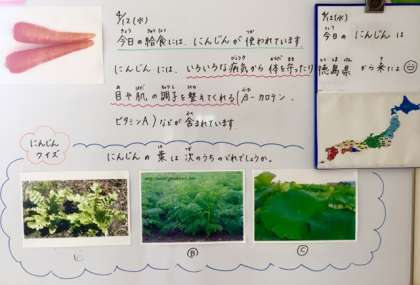 4/12(水)
今日の給食には、にんじんが使われています
にんじんには、いろいろな病気から体を守ったり
目や肌の調子を整えてくれる(β-カロテン、
ビタミンA)などが含まれています
にんじん
クイズ
にんじんの葉は次のうちのどれでしょうか。
Ⓑ
Ⓒ
4/12(水)
今日のにんじんは
徳島県から来たよ